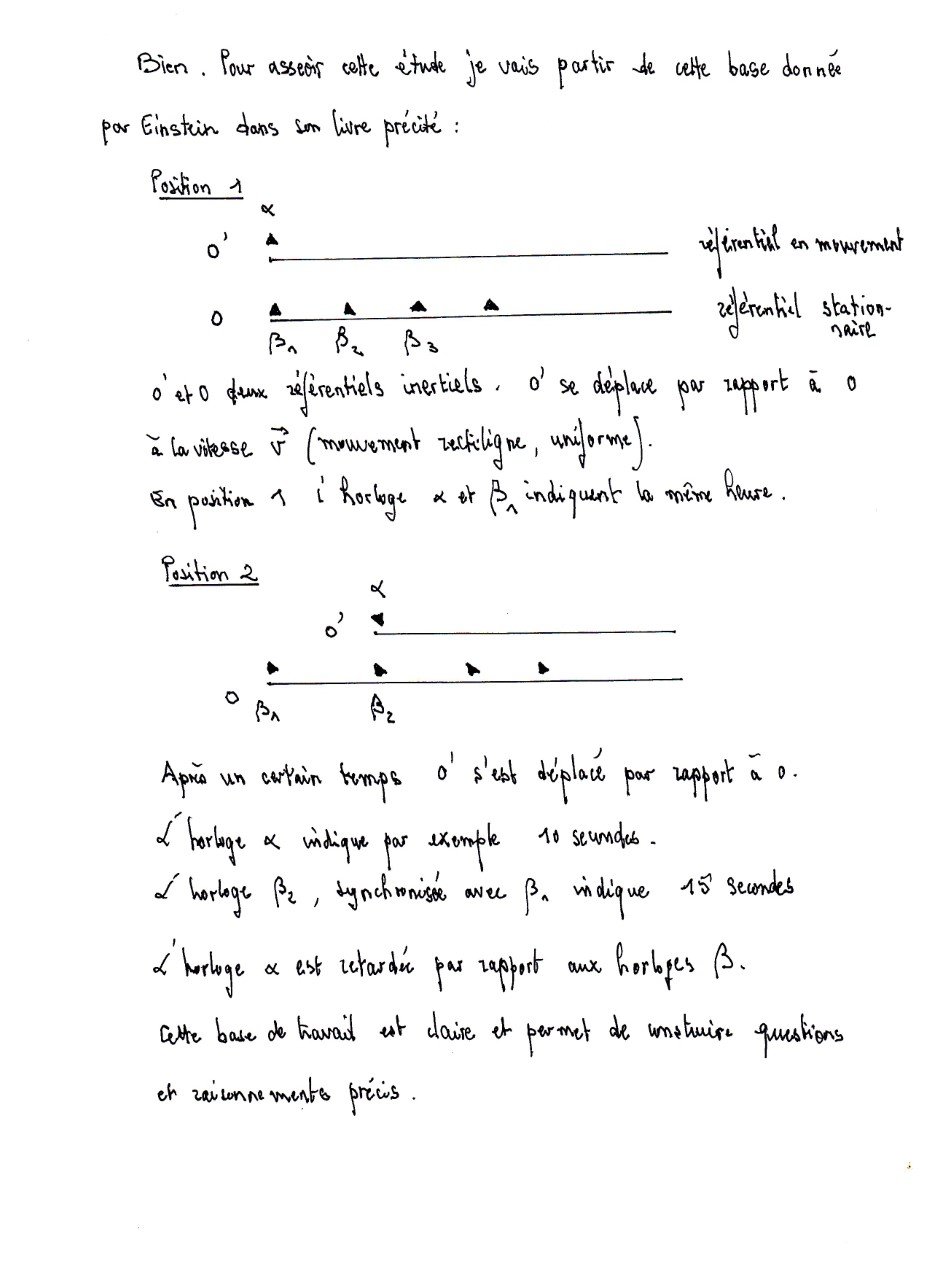 Bien. Pour asseoir cette étude je vais partir de cette base donnée
par Einstein dans son livre précité :
Position 1
α
O' référentiel en mouvement
O référentiel station-
naire
β1 β2 β3
O' et O deux référentiels inertiels. O' se déplace par rapport à O
à la vitesse v⃗ (mouvement rectiligne, uniforme).
En position 1 l'horloge α et β1 indiquent la même heure.
Position 2
α
O'
O
β1 β2
Après un certain temps O' s'est déplacé par rapport à O.
L'horloge α indique par exemple 10 secondes.
L'horloge β2, synchronisée avec β1 indique 15 secondes
L'horloge α est retardée par rapport aux horloges β.
Cette base de travail est claire et permet de construire questions
et raisonnements précis.